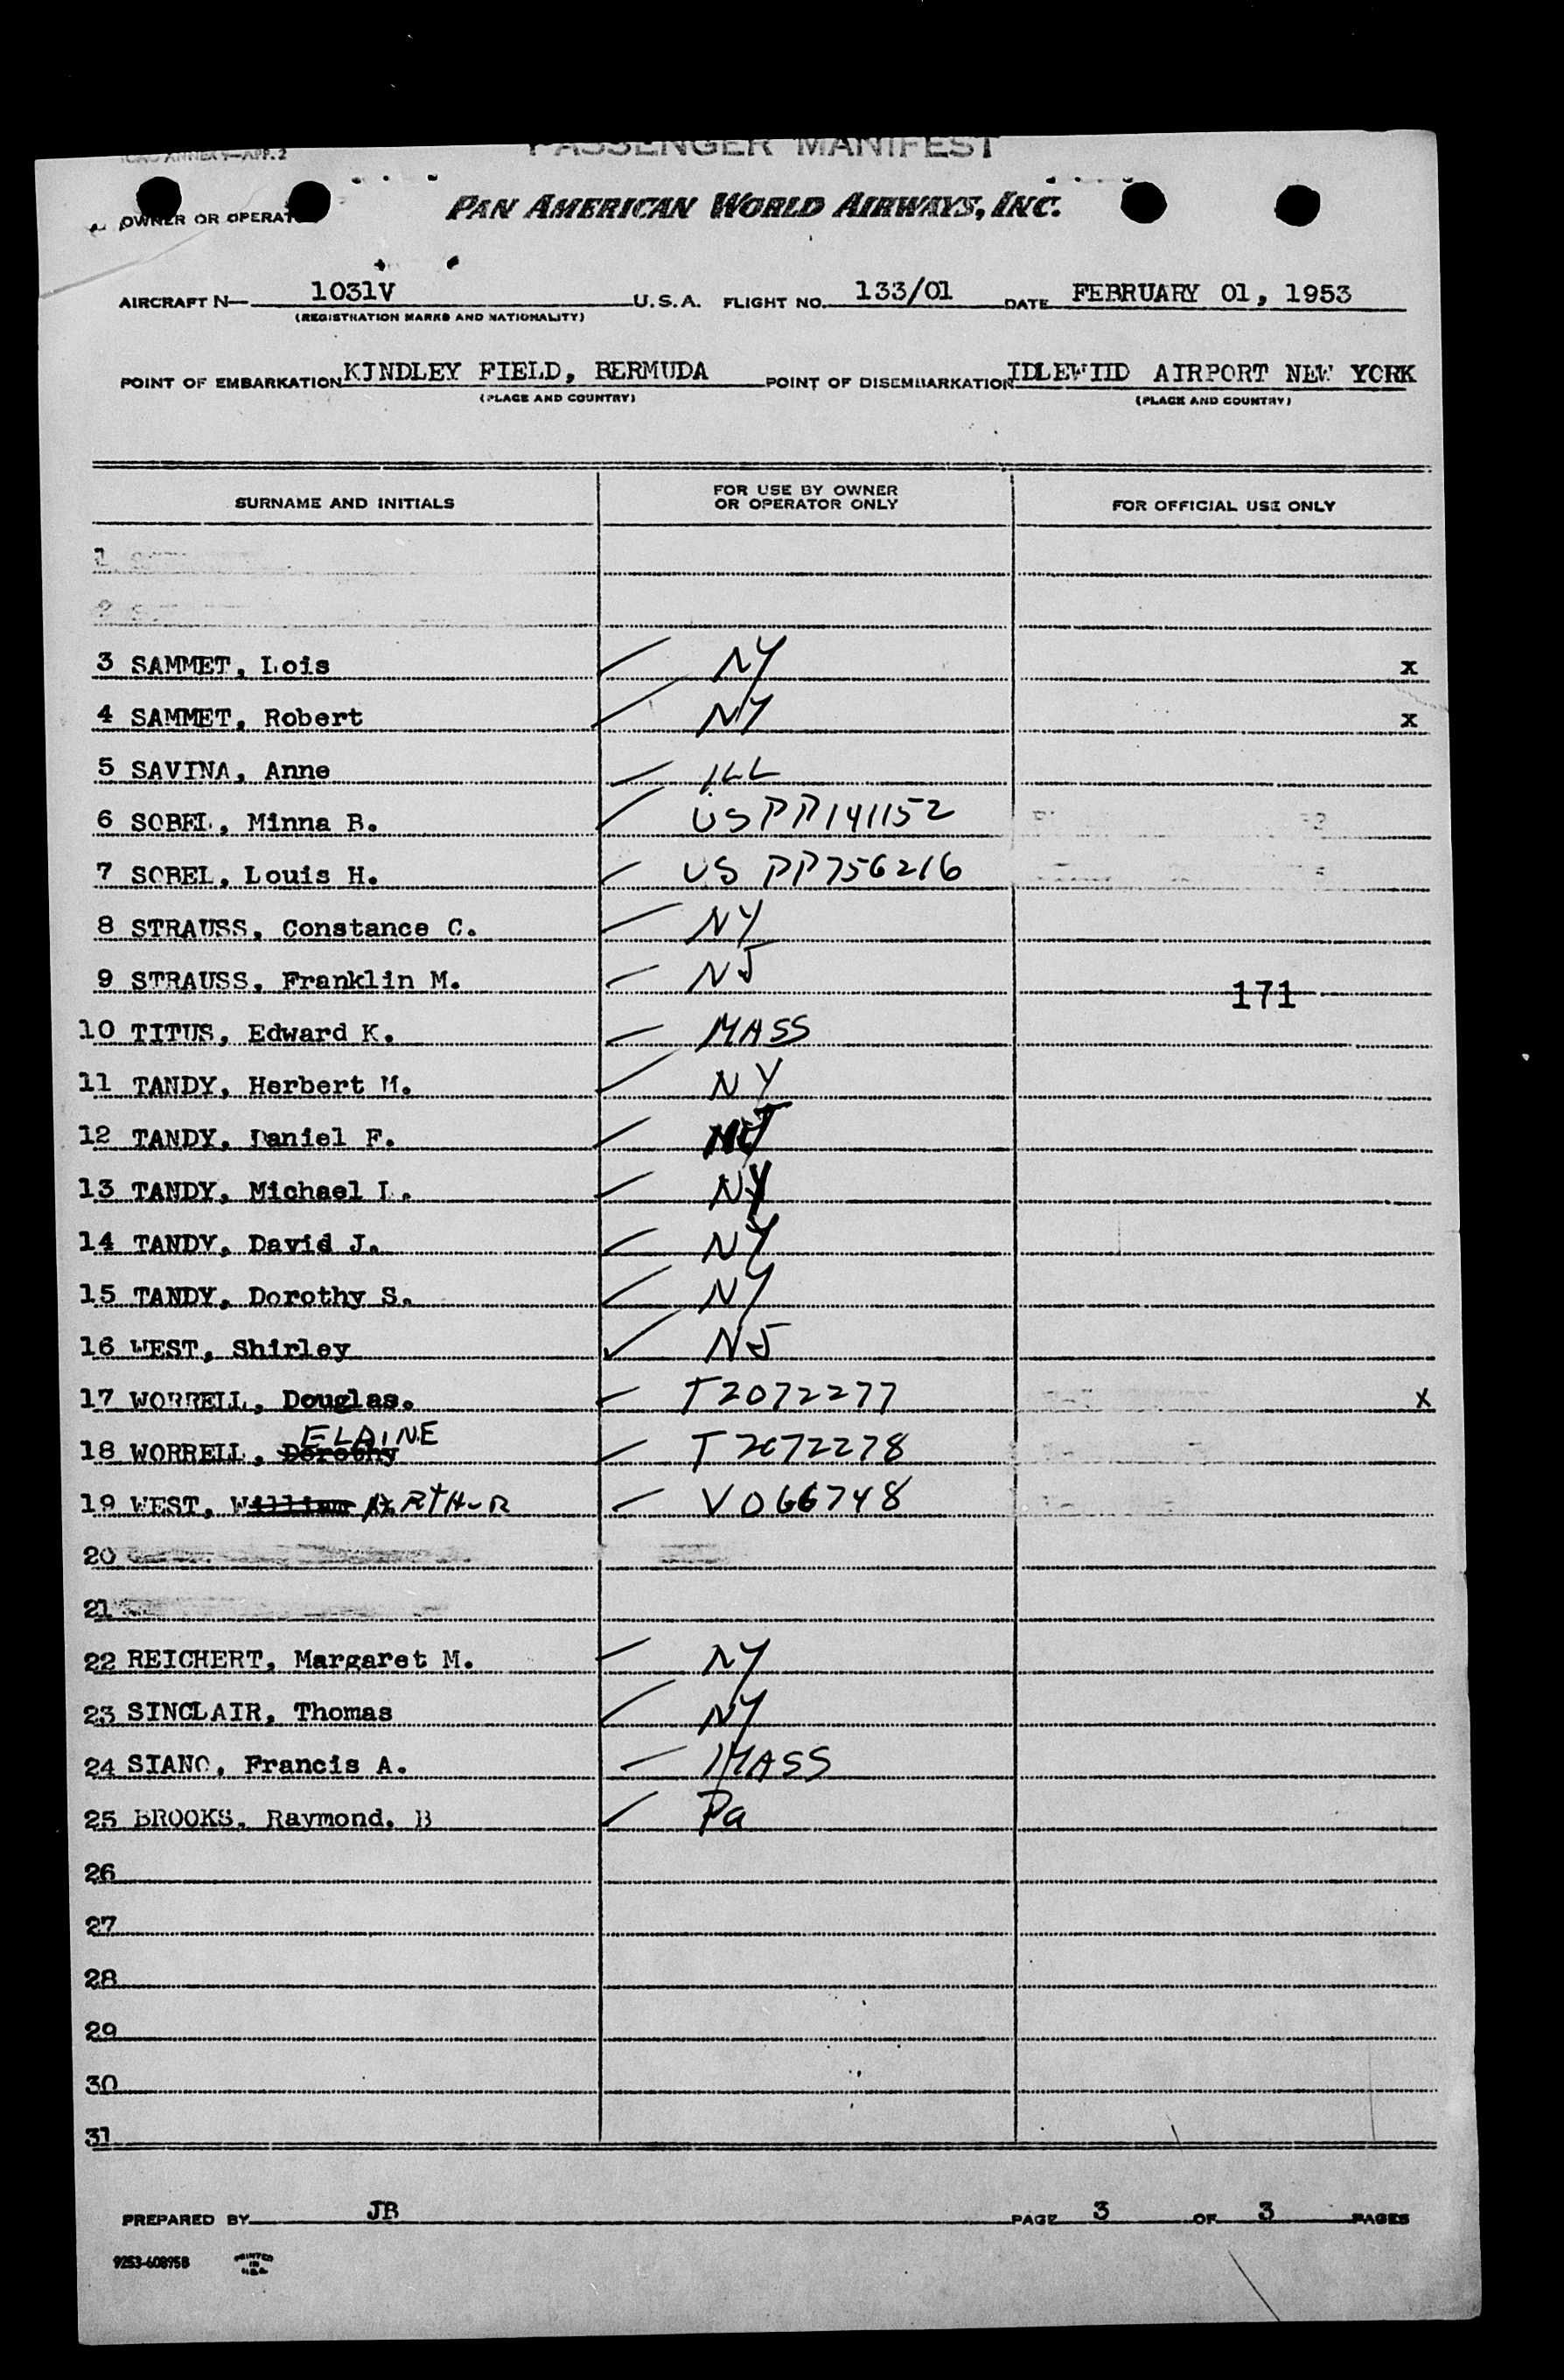 ICAO ANNEX 9—APP. 2
PASSENGER MANIFEST
OWNER OR OPERATOR PAN AMERICAN WORLD AIRWAYS, INC.
AIRCRAFT N— 1031V U.S.A. FLIGHT NO. 133/01 DATE FEBRUARY 01, 1953
(REGISTRATION MARKS AND NATIONALITY)
POINT OF EMBARKATION KINDLEY FIELD, BERMUDA POINT OF DISEMBARKATION IDLEWIID AIRPORT NEW YORK
(PLACE AND COUNTRY) (PLACE AND COUNTRY)
SURNAME AND INITIALS FOR USE BY OWNER OR OPERATOR ONLY FOR OFFICIAL USE ONLY
1
2
3 SAMMET, Lois NY x
4 SAMMET, Robert NY x
5 SAVINA, Anne ILL
6 SOBEL, Minna B. US PP141152
7 SOBEL, Louis H. US PP756216
8 STRAUSS, Constance C. NY
9 STRAUSS, Franklin M. NJ 171
10 TITUS, Edward K. MASS
11 TANDY, Herbert M. NY
12 TANDY, Daniel F.
13 TANDY, Michael L. NY
14 TANDY, David J. NY
15 TANDY, Dorothy S. NY
16 WEST, Shirley NJ
17 WORRELL, Douglas. T2072277 X
18 WORRELL, Dorothy ELAINE T2072278
19 WEST, William ARTHUR V066748
20
21
22 REICHERT, Margaret M. NY
23 SINCLAIR, Thomas NY
24 SIANO, Francis A. MASS
25 BROOKS, Raymond, B Pa
26
27
28
29
30
31
PREPARED BY JB PAGE 3 OF 3 PAGES
9253-60895B PRINTED IN U.S.A.